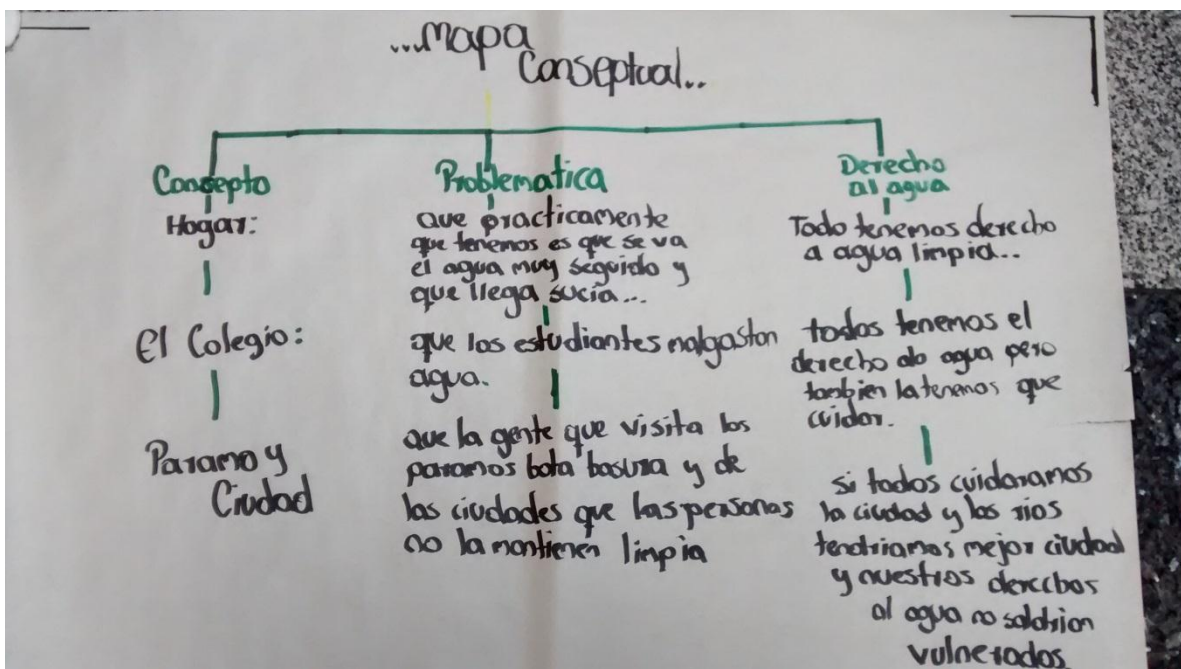 ...Mapa
Conseptual..
Consepto
Hogar:
El Colegio:
Paramo y
Ciudad
Problematica
que practicamente
que tenemos es que se va
el agua muy seguido y
que llega sucia...
que los estudiantes malgastan
agua.
que la gente que visita los
paramos bota basura y de
las ciudades que las personas
no la mantienen limpia
Derecho
al agua
Todo tenemos derecho
a agua limpia...
todos tenemos el
derecho alo agua pero
tambien la tenemos que
cuidar.
si todos cuidaramos
la ciudad y los rios
tendriamos mejor ciudad
y nuestros derechos
al agua no saldrian
vulnerados